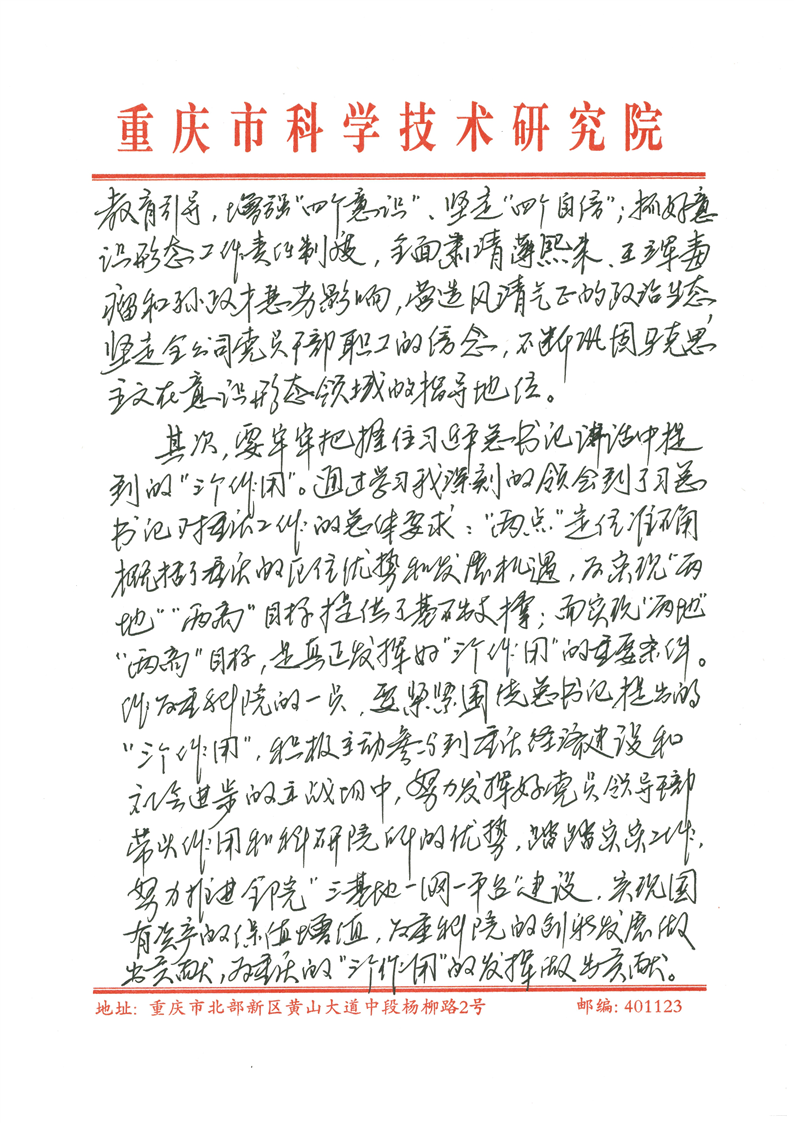 重庆市科学技术研究院
教育引导,增强"四个意识"、坚定"四个自信";抓好意
识形态工作责任制度,全面肃清薄熙来、王立军毒
瘤和孙政才恶劣影响,营造风清气正的政治生态,
坚定全公司党员干部职工的信念,不断巩固马克思
主义在意识形态领域的指导地位。
其次,要牢牢把握住习近平总书记讲话中提
到的"三个作用"。通过学习我深刻的领会到了习总
书记对重庆工作的总体要求:"两点"定位准确
概括了重庆的区位优势和发展机遇,为实现"两
地""两高"目标提供了基础支撑;而实现"两地"
"两高"目标,是真正发挥好"三个作用"的重要条件。
作为重科院的一员,要紧紧围绕总书记提出的
"三个作用",积极主动参与到重庆经济建设和
社会进步的主战场中,努力发挥好党员领导干部
带头作用和科研院所的优势,踏踏实实工作,
努力推进全院"三基地一网一平台"建设,实现国
有资产的保值增值,为重科院的创新发展做
出贡献,为重庆的"三个作用"的发挥做出贡献。
地址: 重庆市北部新区黄山大道中段杨柳路2号 邮编: 401123